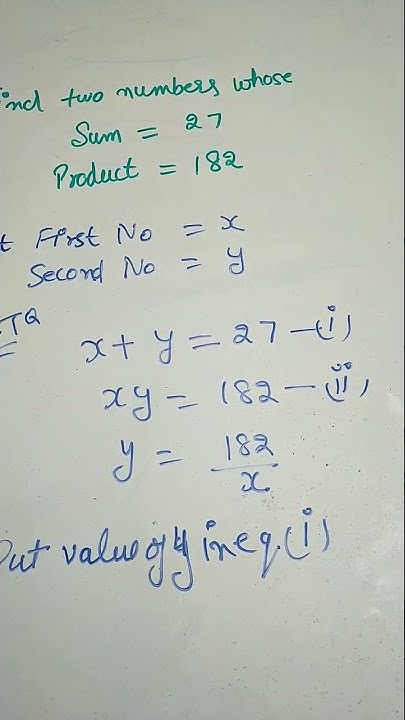 ind two numbers whose
Sum = 27
Product = 182
t First No = x
Second No = y
TQ
x + y = 27 -(i)
xy = 182 - (ii)
y = 182/x
Put value of y in eq.(i)